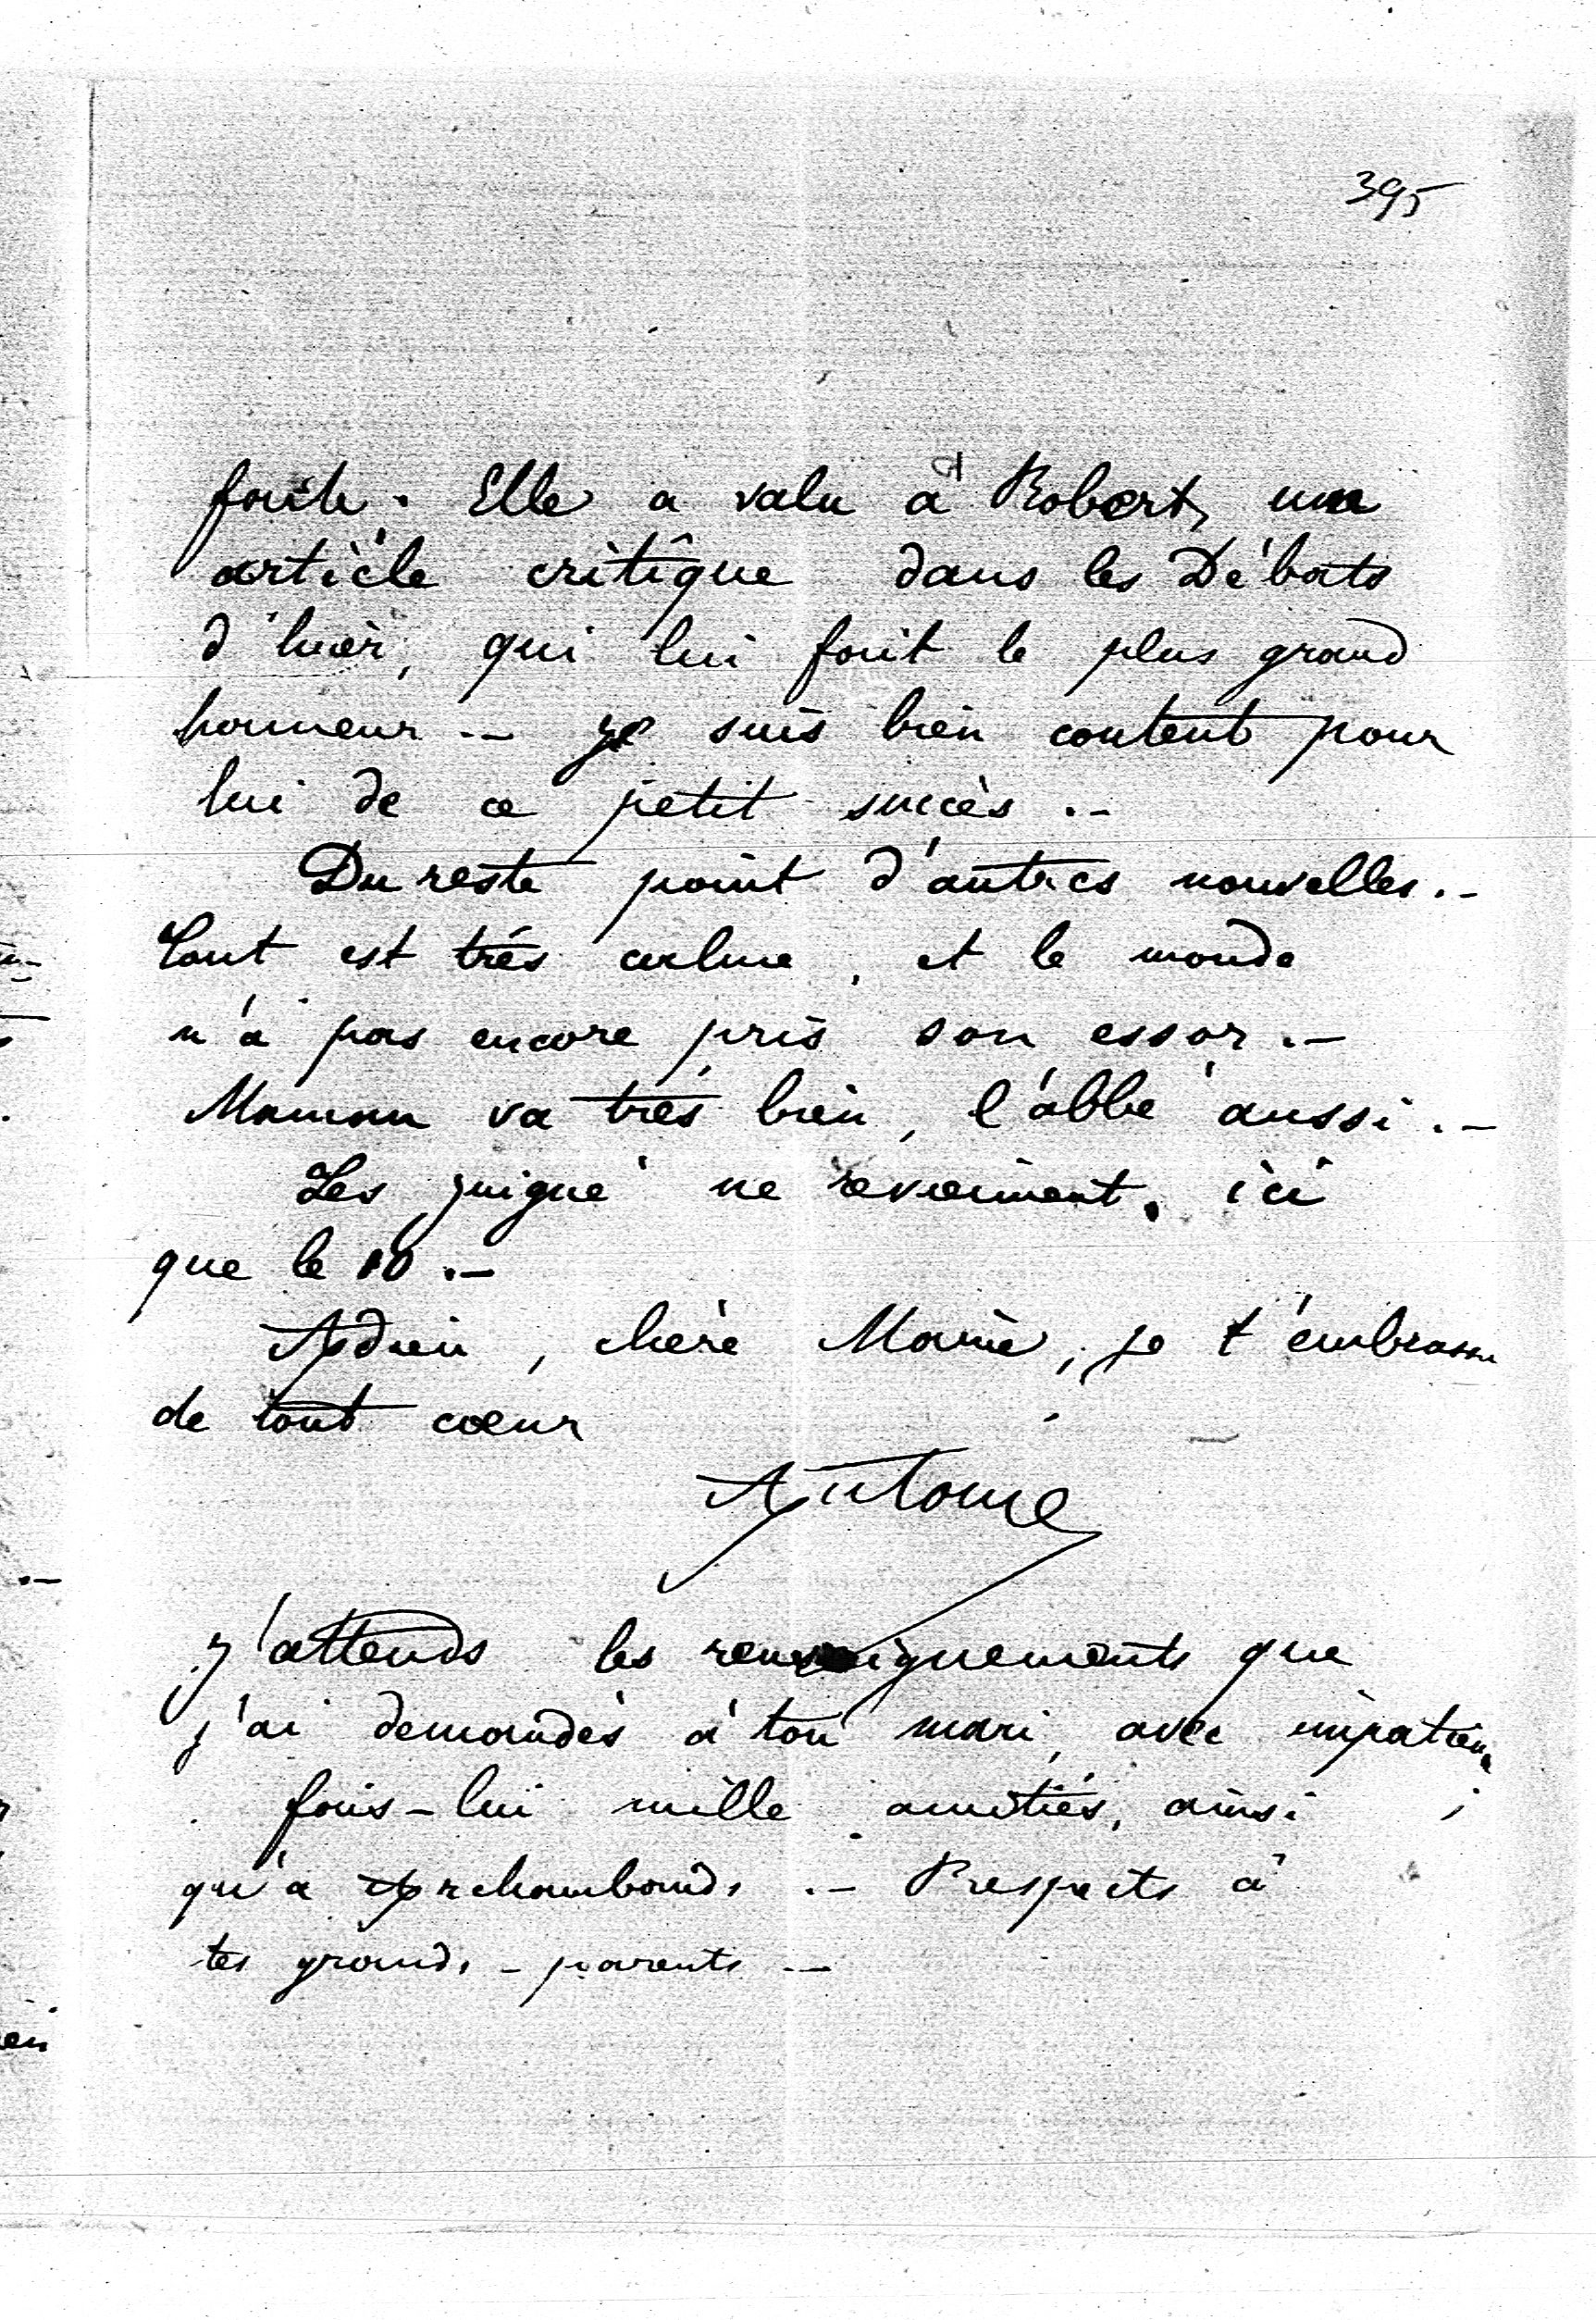 395
faite. Elle a valu à Robert, un
article critique dans les Débats
d'hier, qui lui fait le plus grand
honneur .- je suis bien content pour
lui de ce petit succès .-
Du reste point d'autres nouvelles .-
Tout est très calme, et le monde
n'a pas encore pris son essor .-
Maman va très bien, l'abbé aussi .-
Les juigné ne reviennent, ici
que le 10 .-
Adieu, chère Marie, je t'embrasse
de tout cœur
Antoine
j'attends les renseignements que
j'ai demandés à ton mari, avec impatience
fais-lui mille amitiés, ainsi
qu'a Archambaud, .- Respects à
tes grands-parents .-